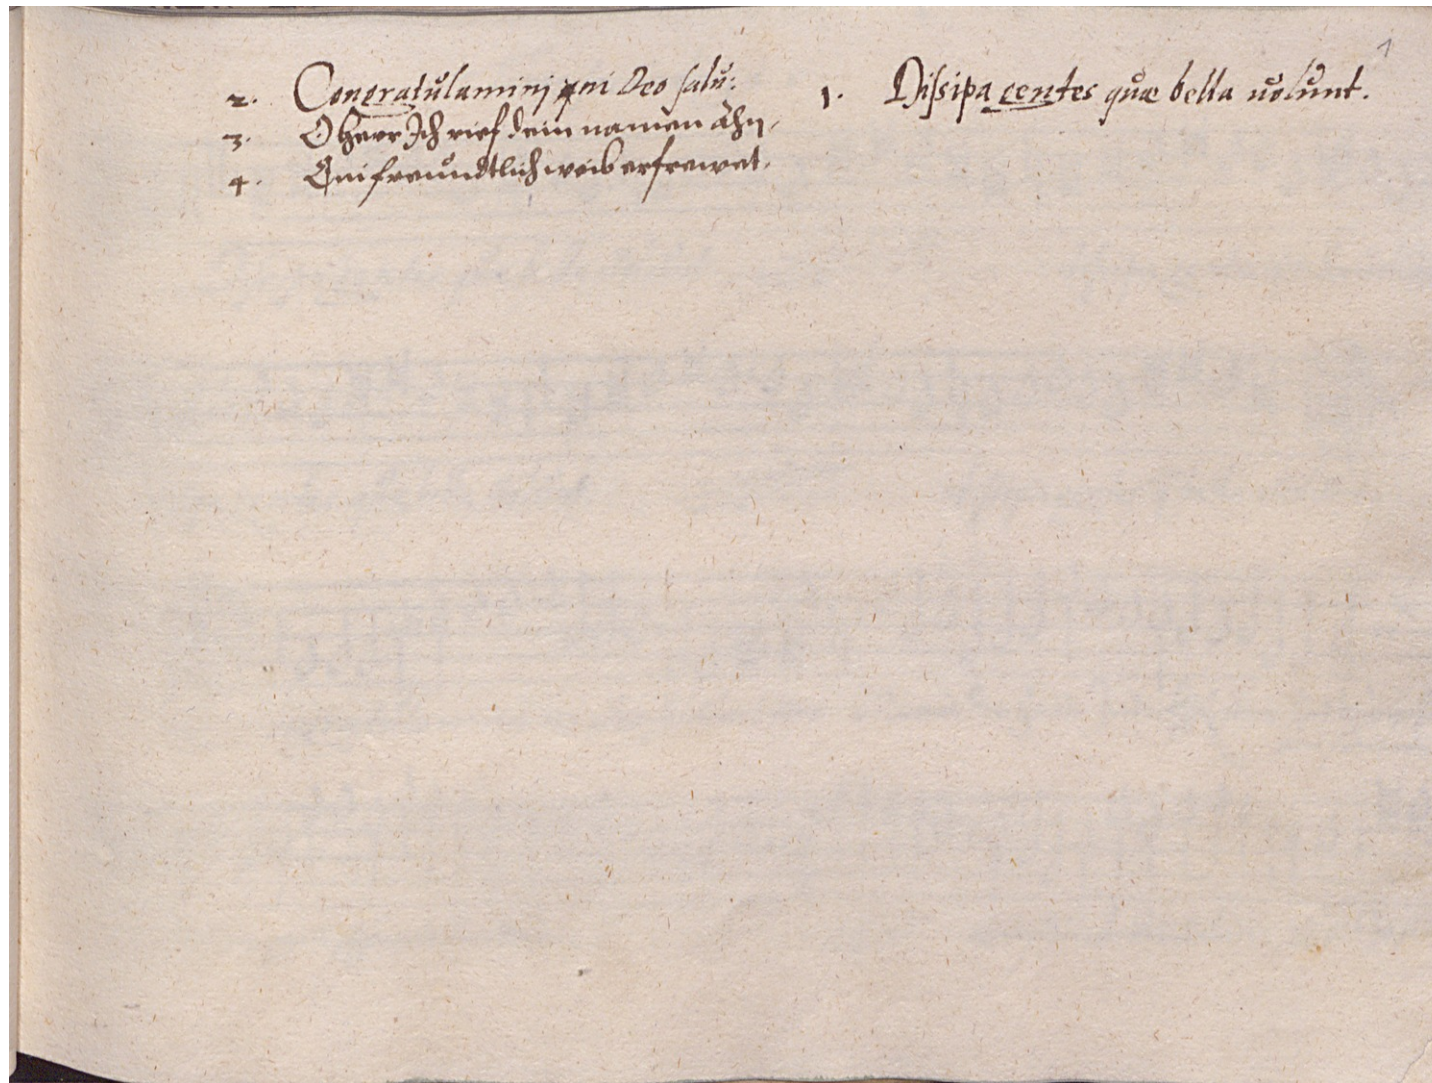 1
2. Congratulaminj uni Deo salu:
3. O Herr Ich rief dein namen ahn,
4. Ein freundtlich weib erfrewet.
1. Dissipa gentes quæ bella uolunt.